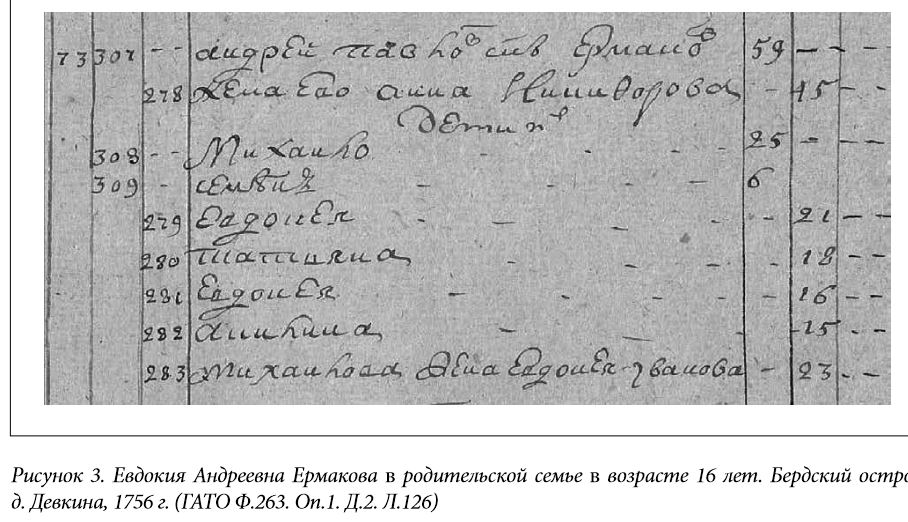 73 307 - - андрей павловъ снъ Ермаковъ 59 - - -
278 жена Ево анна Никифорова - 45 - -
Дети ихъ
308 - - Михаило - - - 25 - - -
309 - - - - 6
279 Евдокея - - - - 21 - -
280 татияна - - - 18 - -
281 Евдокея - - - - 16 - -
282 - - - 15 - -
283 михаилова жена Евдокея Iванова - 23 - -
Рисунок 3. Евдокия Андреевна Ермакова в родительской семье в возрасте 16 лет. Бердский остро
д. Девкина, 1756 г. (ГАТО Ф.263. Оп.1. Д.2. Л.126)